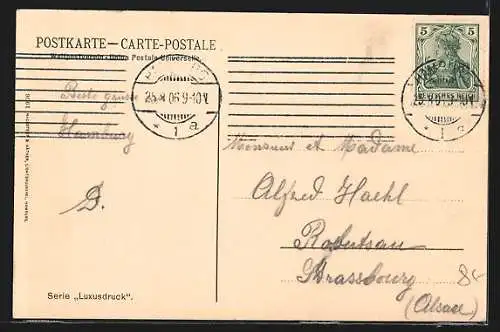 POSTKARTE—CARTE-POSTALE
Weltpostverein - Union Postale Universelle.
5 5
DEUTSCHES REICH
25.4.06.9-10V.
* 1 a
* 1 a
Beste
Hamburg
D.
Monsieur et Madame
Alfred Haehl
Robertsau
Strassbourg
(Alsace)
84
Serie „Luxusdruck“.